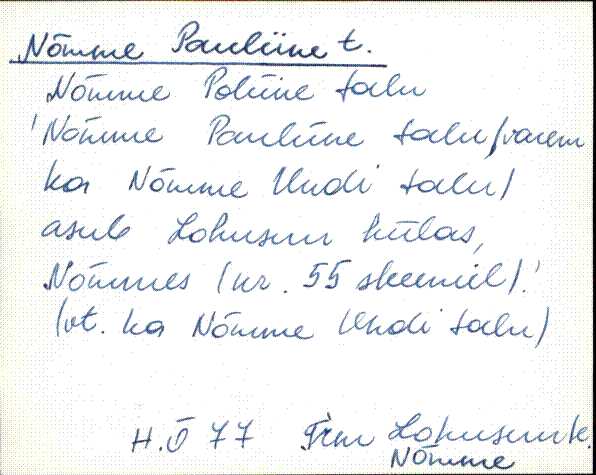 Nõmme Pauliine t.
Nõmme Poliine talu
'Nõmme Pauliine talu (varem
ka Nõmme Undi talu)
asub Lohusuu külas,
Nõmmes (nr. 55 skeemil).'
(vt. ka Nõmme Undi talu)
H.Ü 77 Trm Lohusuu k.
Nõmme